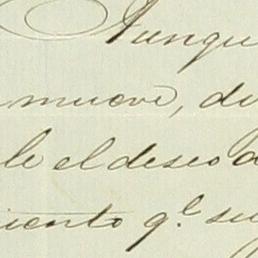 Aunque
mueve, di
le el deseo d
iento q.e su